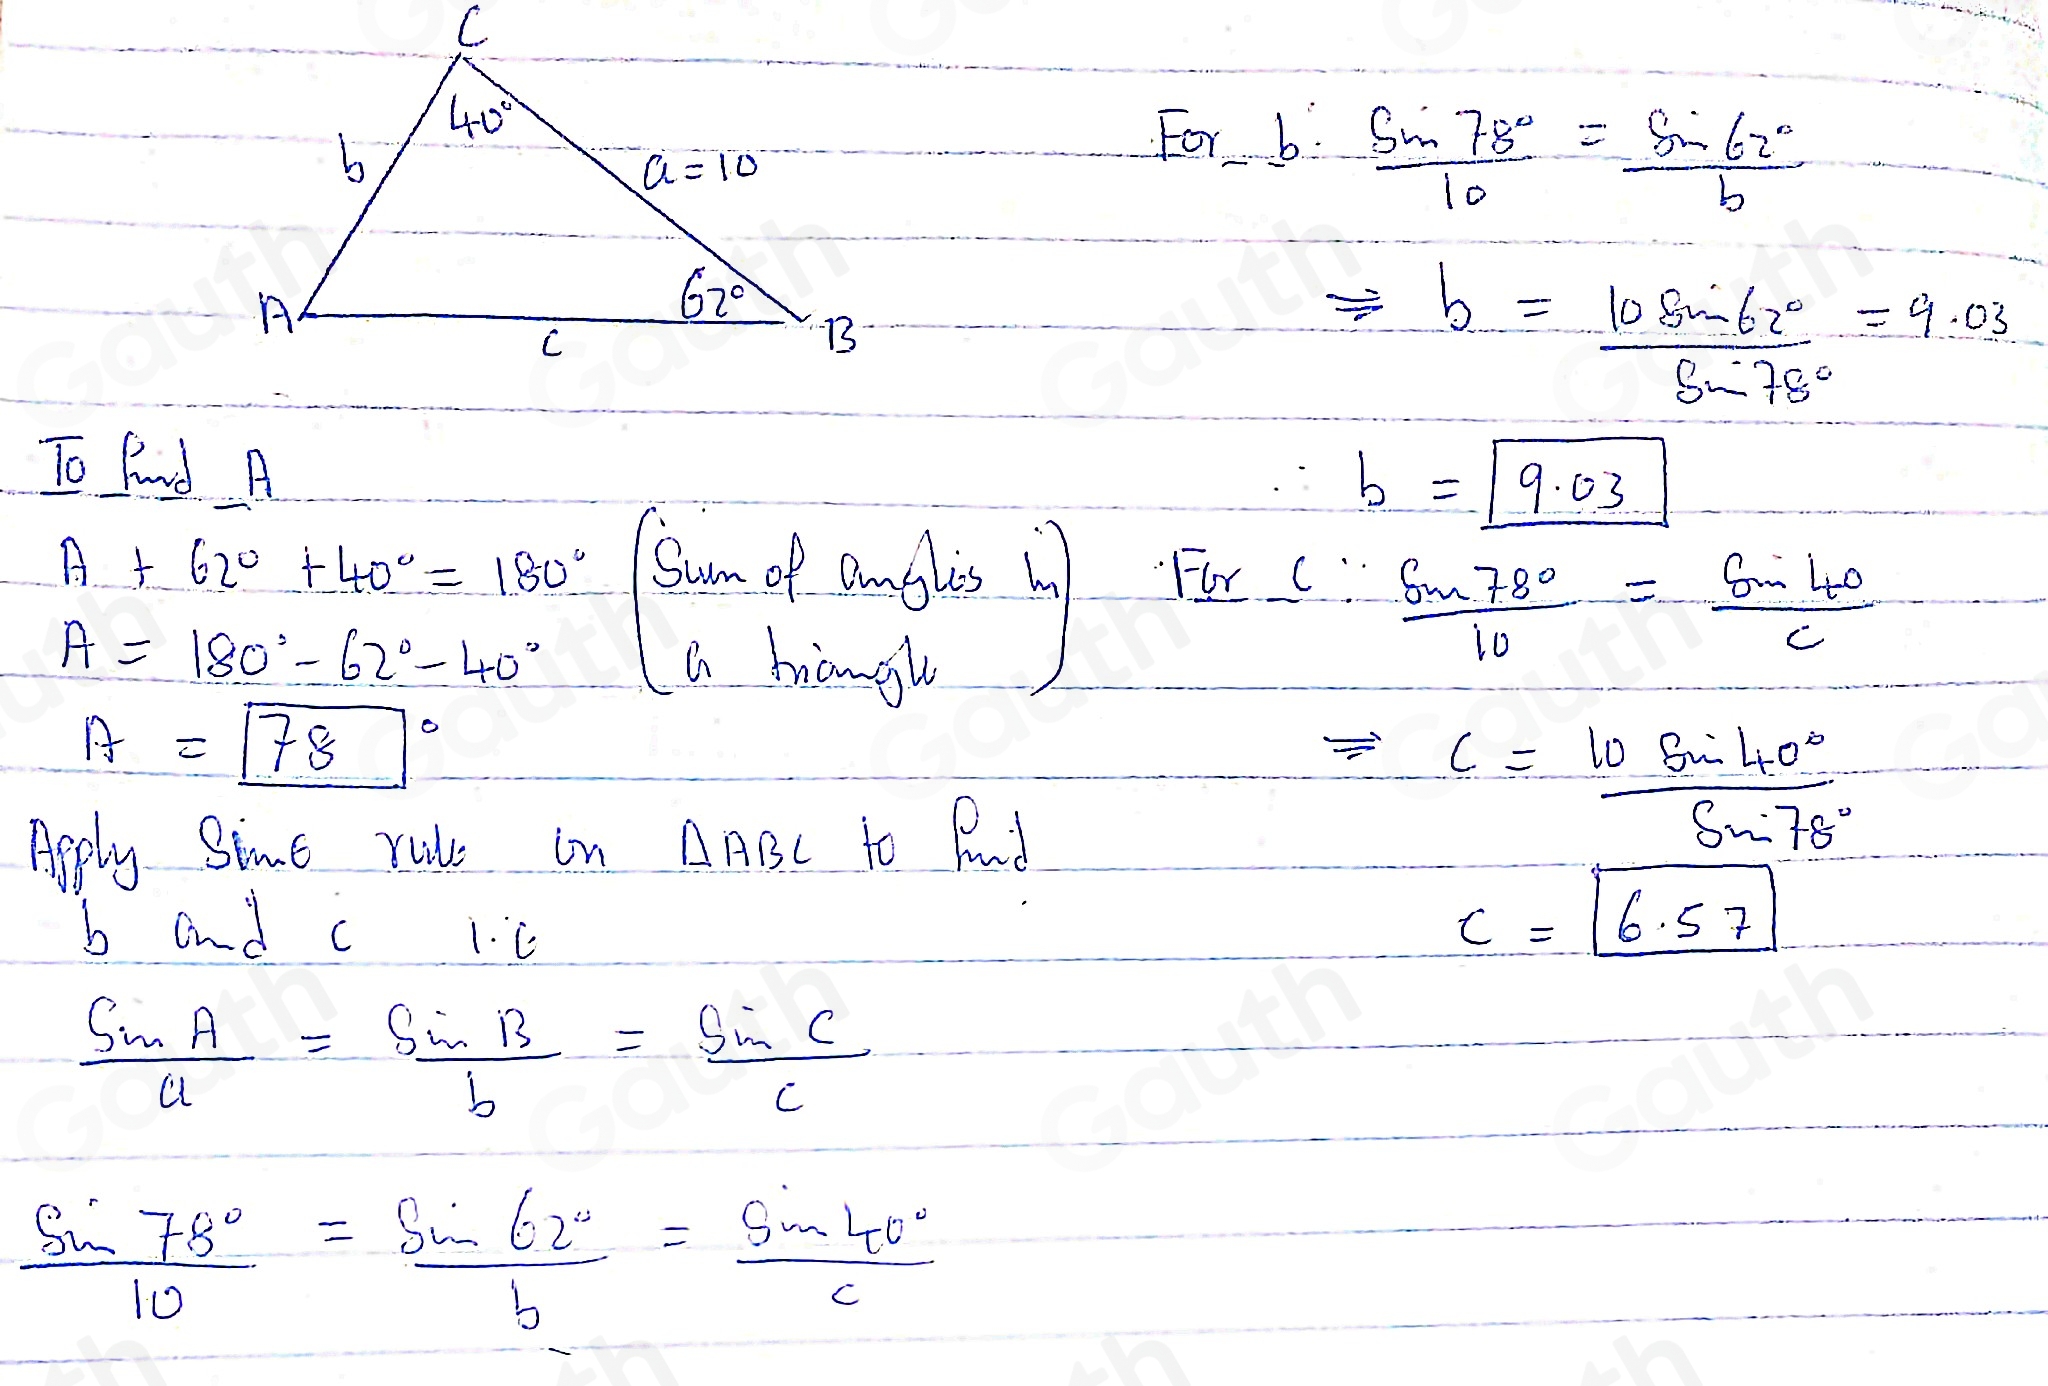 C
40°
b
a = 10
62°
A
c
B
To find A
A + 62° + 40° = 180° (Sum of angles in
a triangle)
A = 180° - 62° - 40°
A = 78°
Apply Sine rule on ΔABC to find
b and c i.e
Sin A / a = Sin B / b = Sin C / c
Sin 78° / 10 = Sin 62° / b = Sin 40° / c
For b: Sin 78° / 10 = Sin 62° / b
⇒ b = 10 Sin 62° / Sin 78° = 9.03
∴ b = 9.03
For C: Sin 78° / 10 = Sin 40 / c
⇒ c = 10 Sin 40° / Sin 78°
c = 6.57
Gauth